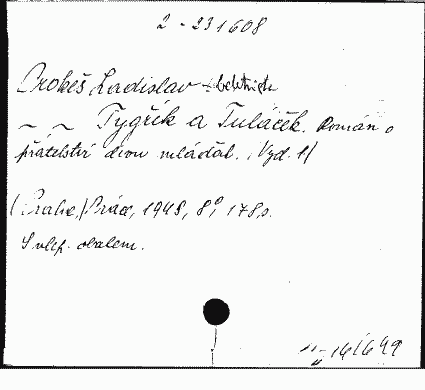 2 - 231608
Prokeš, Ladislav - beletrista
~ ~ Tygřík a Tuláček. Román o
přátelství dvou mláďat. (Vyd. 1)
(Praha,) Práce, 1948, 8°, 178 s.
S vlep. obálem.
16/649